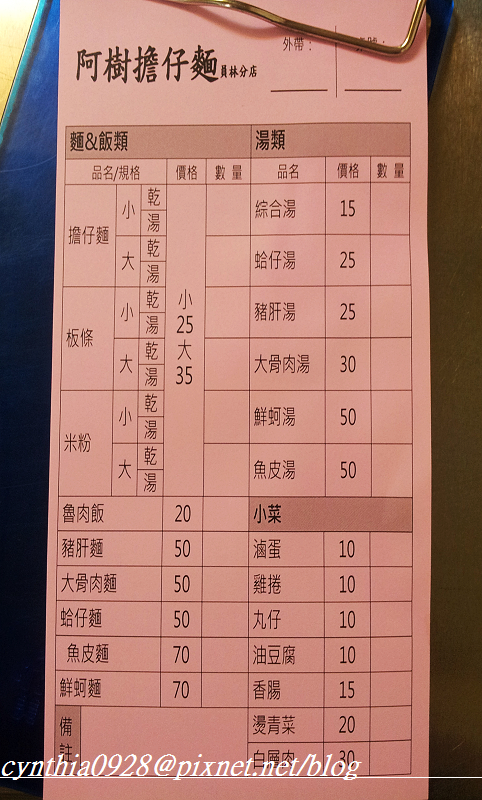 外帶：
阿樹擔仔麵員林分店
麵&飯類 湯類
品名/規格 價格 數量 品名 價格 數量
擔仔麵 小 乾 湯 大 乾 湯
板條 小 乾 湯 大 乾 湯
米粉 小 乾 湯 大 乾 湯
小 25 大 35
綜合湯 15
蛤仔湯 25
豬肝湯 25
大骨肉湯 30
鮮蚵湯 50
魚皮湯 50
魯肉飯 20 小菜
豬肝麵 50 滷蛋 10
大骨肉麵 50 雞捲 10
蛤仔麵 50 丸仔 10
魚皮麵 70 油豆腐 10
鮮蚵麵 70 香腸 15
備註 燙青菜 20
白層肉 30
cynthia0928@pixnet.net/blog